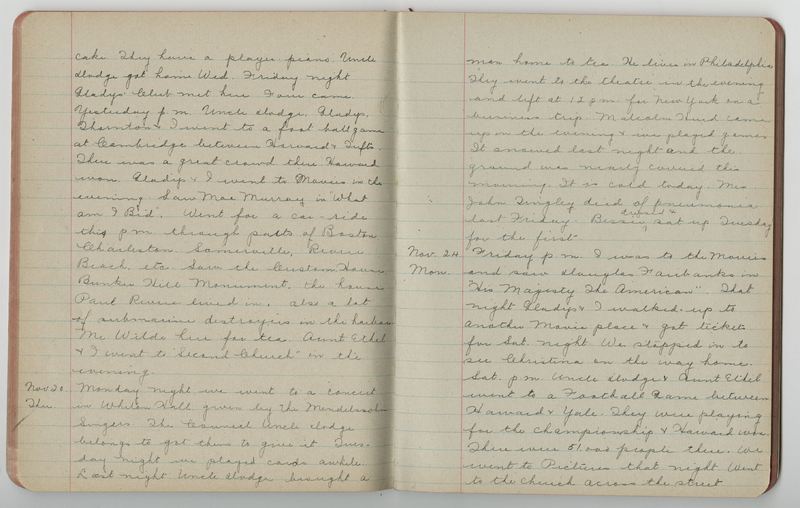 cake. They have a player piano. Uncle
Dodge got home Wed. Friday night
Gladys' Club met here. Four came.
Yesterday p.m. Uncle Dodge, Gladys,
Thornton & I went to a foot ball game
at Cambridge between Harvard & Tufts.
There was a great crowd there. Harvard
won. Gladys & I went to Movies in the
evening. Saw Mae Murray in "What
am I Bid". Went for a car-ride
this p.m. through parts of Boston
Charleston Somerville, Revere
Beach, etc. Saw the Custom House
Bunker Hill Monument, the house
Paul Revere lived in, also a lot
of submarine destroyers in the harbor.
Mr. Wilde here for tea. Aunt Ethel
& I went to "Second Church" in the
evening.
Nov 20. Monday night we went to a concert
Thu. in Whiton Hall given by the Mendelssohn
Singers. The Council Uncle Dodge
belongs to got them to give it. Tues-
day night we played cards awhile.
Last night Uncle Dodge brought a
man home to tea. He lives in Philadelphia
They went to the theatre in the evening
and left at 12 p.m. for New York on a
business trip. Malcolm Hurd came
up in the evening & we played games
It snowed last night and the
ground was nearly covered this
morning. It is cold today. Mrs.
John Tingley died of pneumonia
last Friday. Bessie dressed & sat up Tuesday
for the first
Nov. 24 Friday p.m. I was to the Movies
Mon. and saw Douglas Fairbanks in
"His Majesty The American". That
night Gladys & I walked up to
another Movie place & got tickets
for Sat. night We stopped in to
see Christina on the way home.
Sat. p.m. Uncle Dodge & Aunt Ethel
went to a Football Game between
Harvard & Yale. They were playing
for the championship & Harvard won.
There were 51,000 people there. We
went to Pictures that night Went
to the church across the street